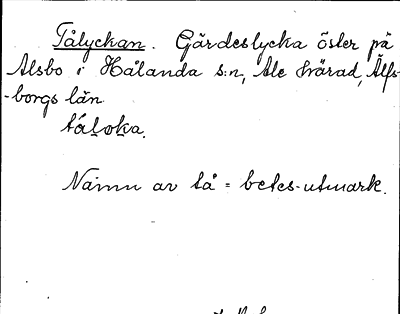 Tålyckan. Gärdeslycka öster på
Alsbo i Hålanda s:n, Ale härad, Älfs-
-borgs län.
tåloka.
Namn av tå = betes-utmark.